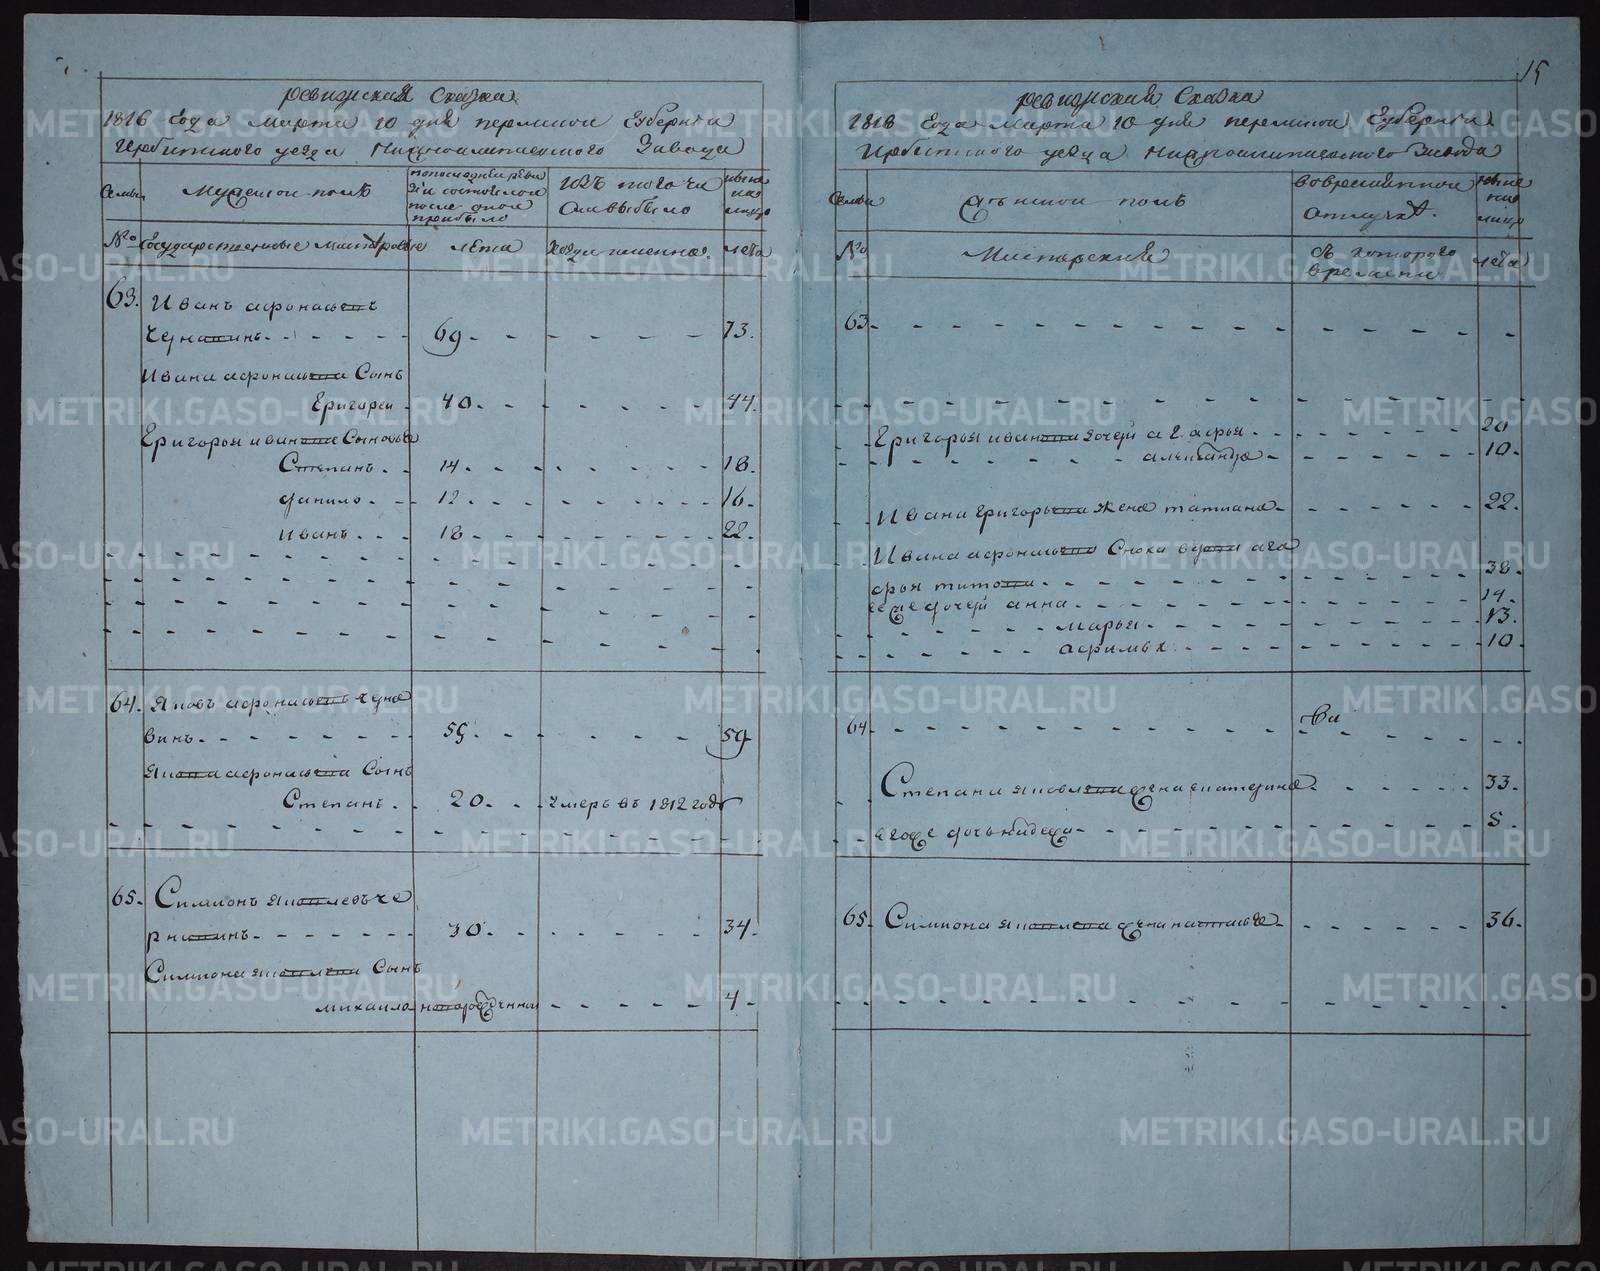 15
ревижская Сказка
1816 Года марта 10 дня пермской Губернии
Ирбитского уезда Нижноалапаевского Завода
Семьи
Мужеской полъ
по последней ревизи состояло и после оной прибыло
изъ того числа выбыло
ныне на лицо
№
Государственные мастровые
лета
когда именно
лета
63. Иванъ афонасьевъ
Чернавинъ 69 73.
Ивана афонасьева Сынъ
Григореи 40. 44.
Григорья иванова Сыновья
Степанъ 14 18.
данило 12 16.
Иванъ 18. 22.
64. Яковъ афонасьевъ черна
винъ 55. 59
Якова афонасьева Сынъ
Степанъ 20. умеръ въ 1812 годе
65. Симионъ Яковлевъ че
рнавинъ 30. 34.
Симиона яковлева Сынъ
михаило новорожденныи 4
ревижская Сказка
1816 Года марта 10 дня пермской Губернии
Ирбитского уезда Нижноалапаевского Завода
Семьи
женской полъ
вовременной отлучке.
ныне на лицо
№
Мастерские
съ которого времени
лета
63.
Григорья иванова дочери агафья 20
александра 10.
Ивана григорьева жена татиана 22.
Ивана афонасьева Сноха вдова ага
фья титова 38.
ее же дочери анна 14.
марья 13.
афимья 10
64
Степана яковлева жена екатерина 33.
егоже дочь надежда 5.
65. Симиона яковлева жена наталья 36.
METRIKI.GASO-URAL.RU